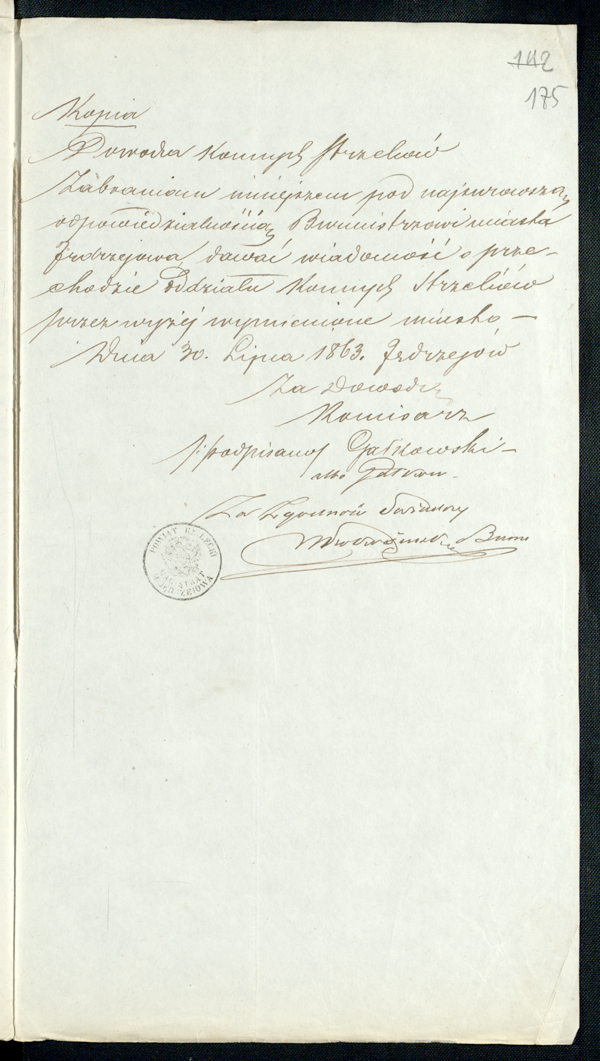 142
175
Kopia
Dowódca Konnych Strzelców
Zabraniam niniejszem pod najsurowszą
odpowiedzialnością Burmistrzowi miasta
Jędrzejowa, dawać wiadomość o prze-
chodzie Oddziału Konnych Strzelców
przez wyżej wymienione miasto —
Dnia 30. Lipca 1863. Jędrzejów
Za Dowódcę
Komisarz
/:podpisano/ Gałkowski —
albo
Za Zgodność
POWIAT KIELECKI
MAGISTRAT
M. JĘDRZEJOWA